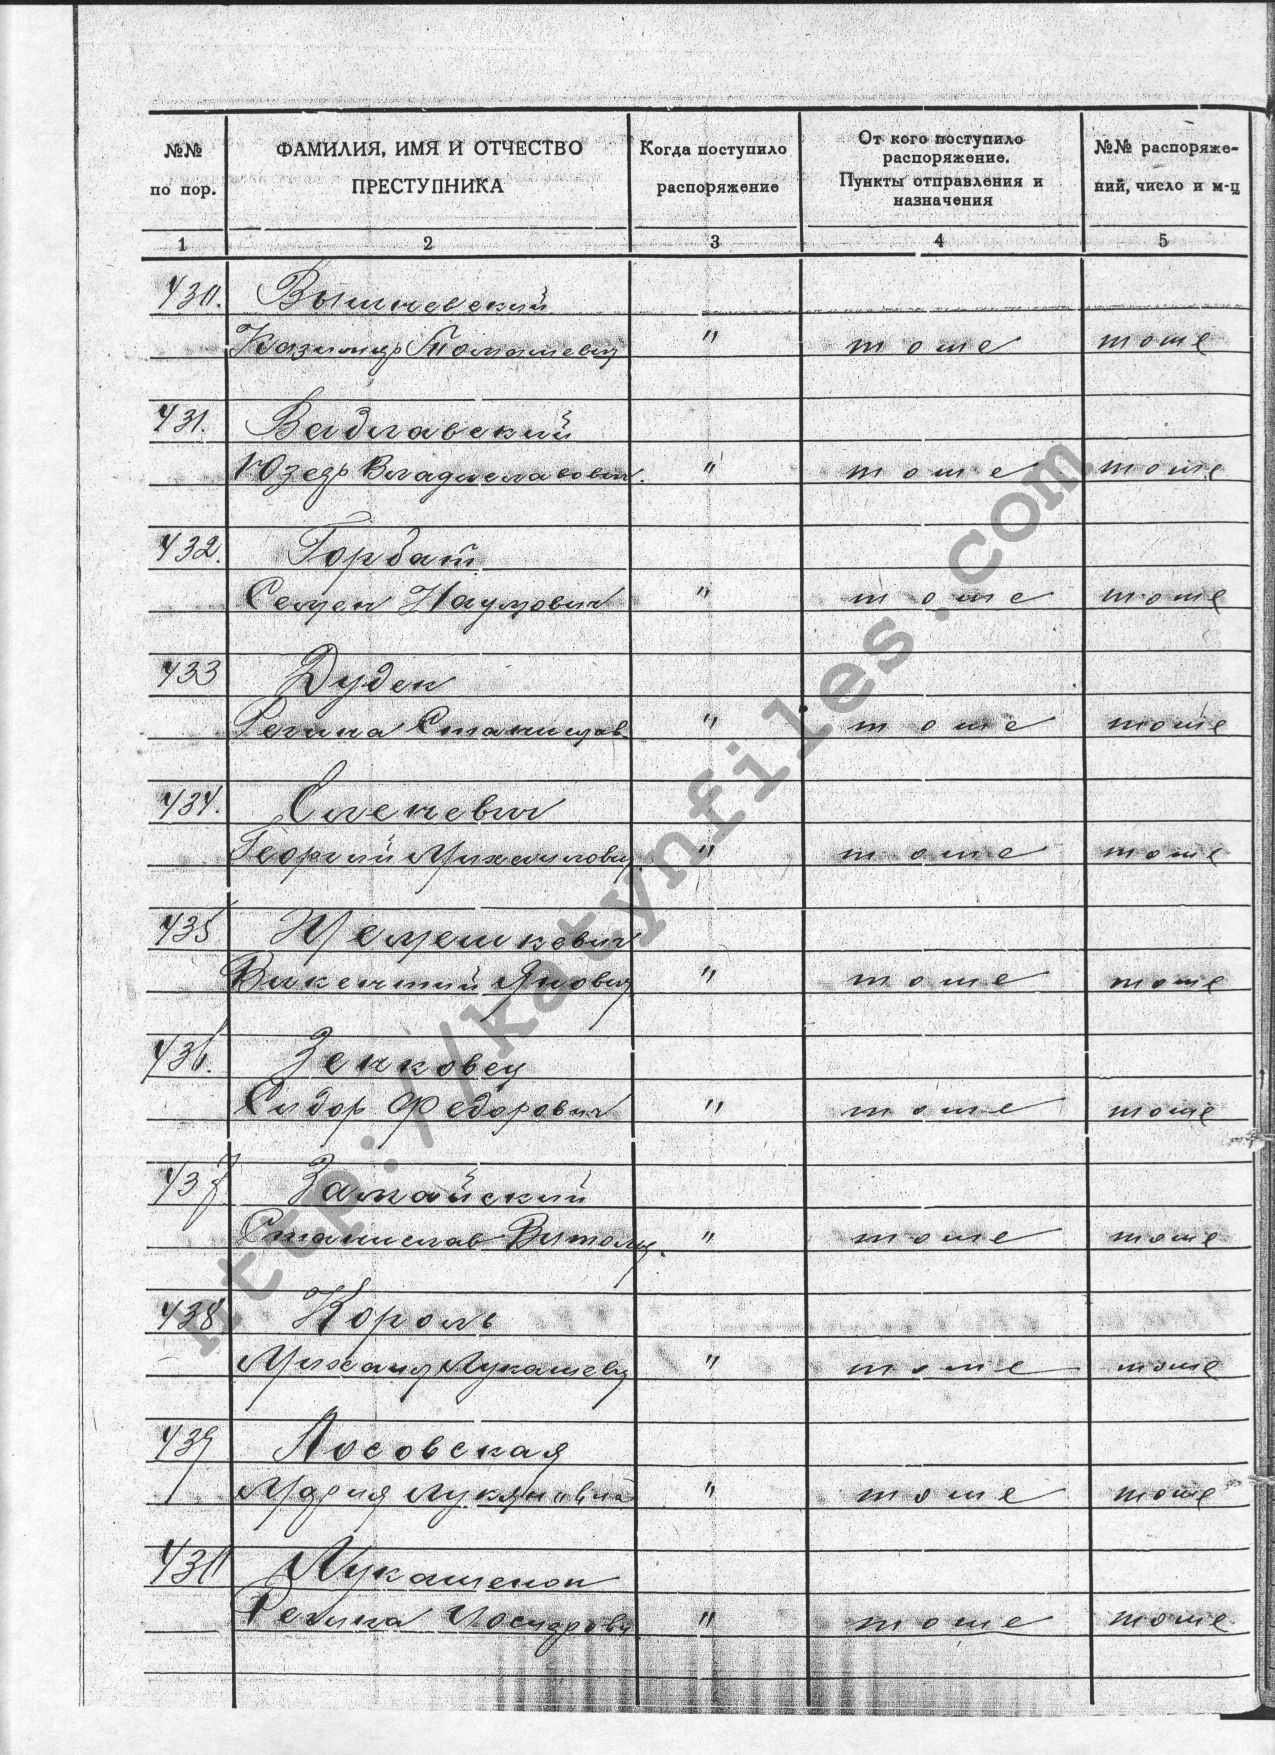 №№ по пор.
ФАМИЛИЯ, ИМЯ И ОТЧЕСТВО ПРЕСТУПНИКА
Когда поступило распоряжение
От кого поступило распоряжение. Пункты отправления и назначения
№№ распоряже- ний, число и м-ц
1 2 3 4 5
430. Вышневский
Казимир Томашевич " тоже тоже
431. Вадлавский
Юзеф Владиславович. " тоже тоже
432. Горбат
Семен Наумович " тоже тоже
433 Дудек
Регина Станислав " тоже тоже
434. Сленевич
Георгий Михайлович " тоже тоже
435 Жемешкевич
Викентий Янович " тоже тоже
436. Зенковец
Сидор Федорович " тоже тоже
437 Замайский
Станислав Витольд. " тоже тоже
438 Король
Михаил Лукашевич " тоже тоже
439 Лосовская
Мария " тоже тоже
Лукашенок
Регина " тоже тоже
http://katynfiles.com